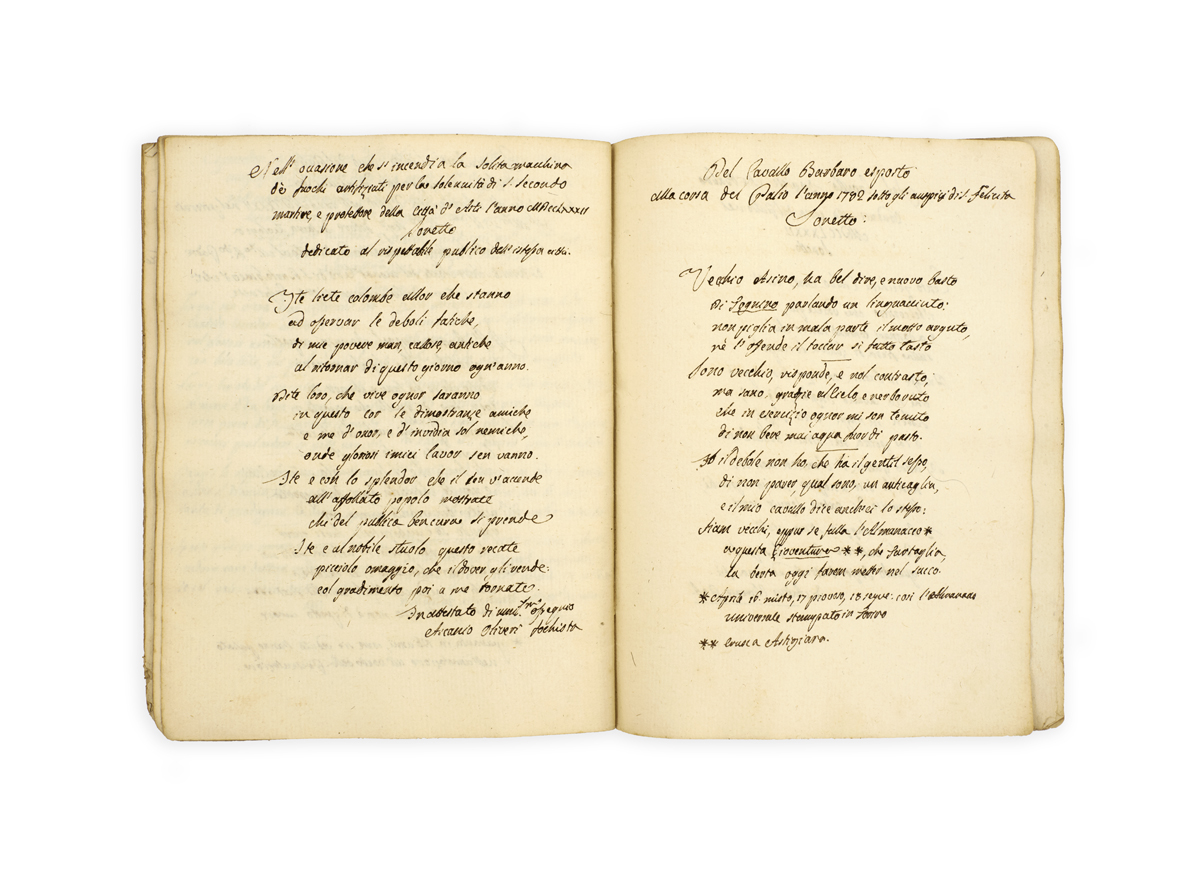 Nell' occasione che s' incendia la solita macchina
de' fuochi artifiziati per la solennità di S. Secondo
martire, e protettore della Città d' Asti l'anno MDCCLXXXII
Sonetto
dedicato al rispettabile publico dell' istessa città.
Ite liete colombe allor che stanno
ad osservar le deboli fatiche,
di mie povere man, callose, antiche
al ritornar di questo giorno ogn' anno.
Dite loro, che vive ognor saranno
in questo cor le dimostranze amiche
e me d' onor, e d' invidia sol nemiche,
onde gloriosi i miei lavor sen vanno.
Ite e con lo splendor che il sen v' accende
all' affollato popolo mostrate
chi del publico ben cura si prende
Ite e al nobile stuolo questo recate
picciolo omaggio, che il dover gli vende:
col gradimento poi a me tornate
In attestato di umil.mo ossequio
Ascanio Oliveri fochista
Del Cavallo Barbaro esposto
alla corsa del Palio l'anno 1782 sotto gli auspizi di S. Felicita
Sonetto:
Vecchio Asino, ha bel dire, e nuovo basto
Di Zennino parlando un linguacciuto:
non piglia in mala parte il motto arguto,
nè l' offende il toccar si fatto tasto
Sono vecchio, risponde, e nol contrasto;
ma sano, grazie al Cielo, e nerboruto
che in esercizio ognor mi son tenuto
di non bere mai aqua fuor di pasto.
Io il debole non ho, che ha il gentil sesso,
di non parer, qual sono, un anticaglia,
e il mio cavallo dice anch'ei lo stesso:
Siam vecchi, eppur se falla l' Almanacco *
a questa Gioventura **, che furtaglia,
la berta oggi farem metter nel sacco.
* Aprile 16. misto, 17 piovoso, 18 segue: così l' Almanacco
universale stampato in Torino
** crusca Astigiana.